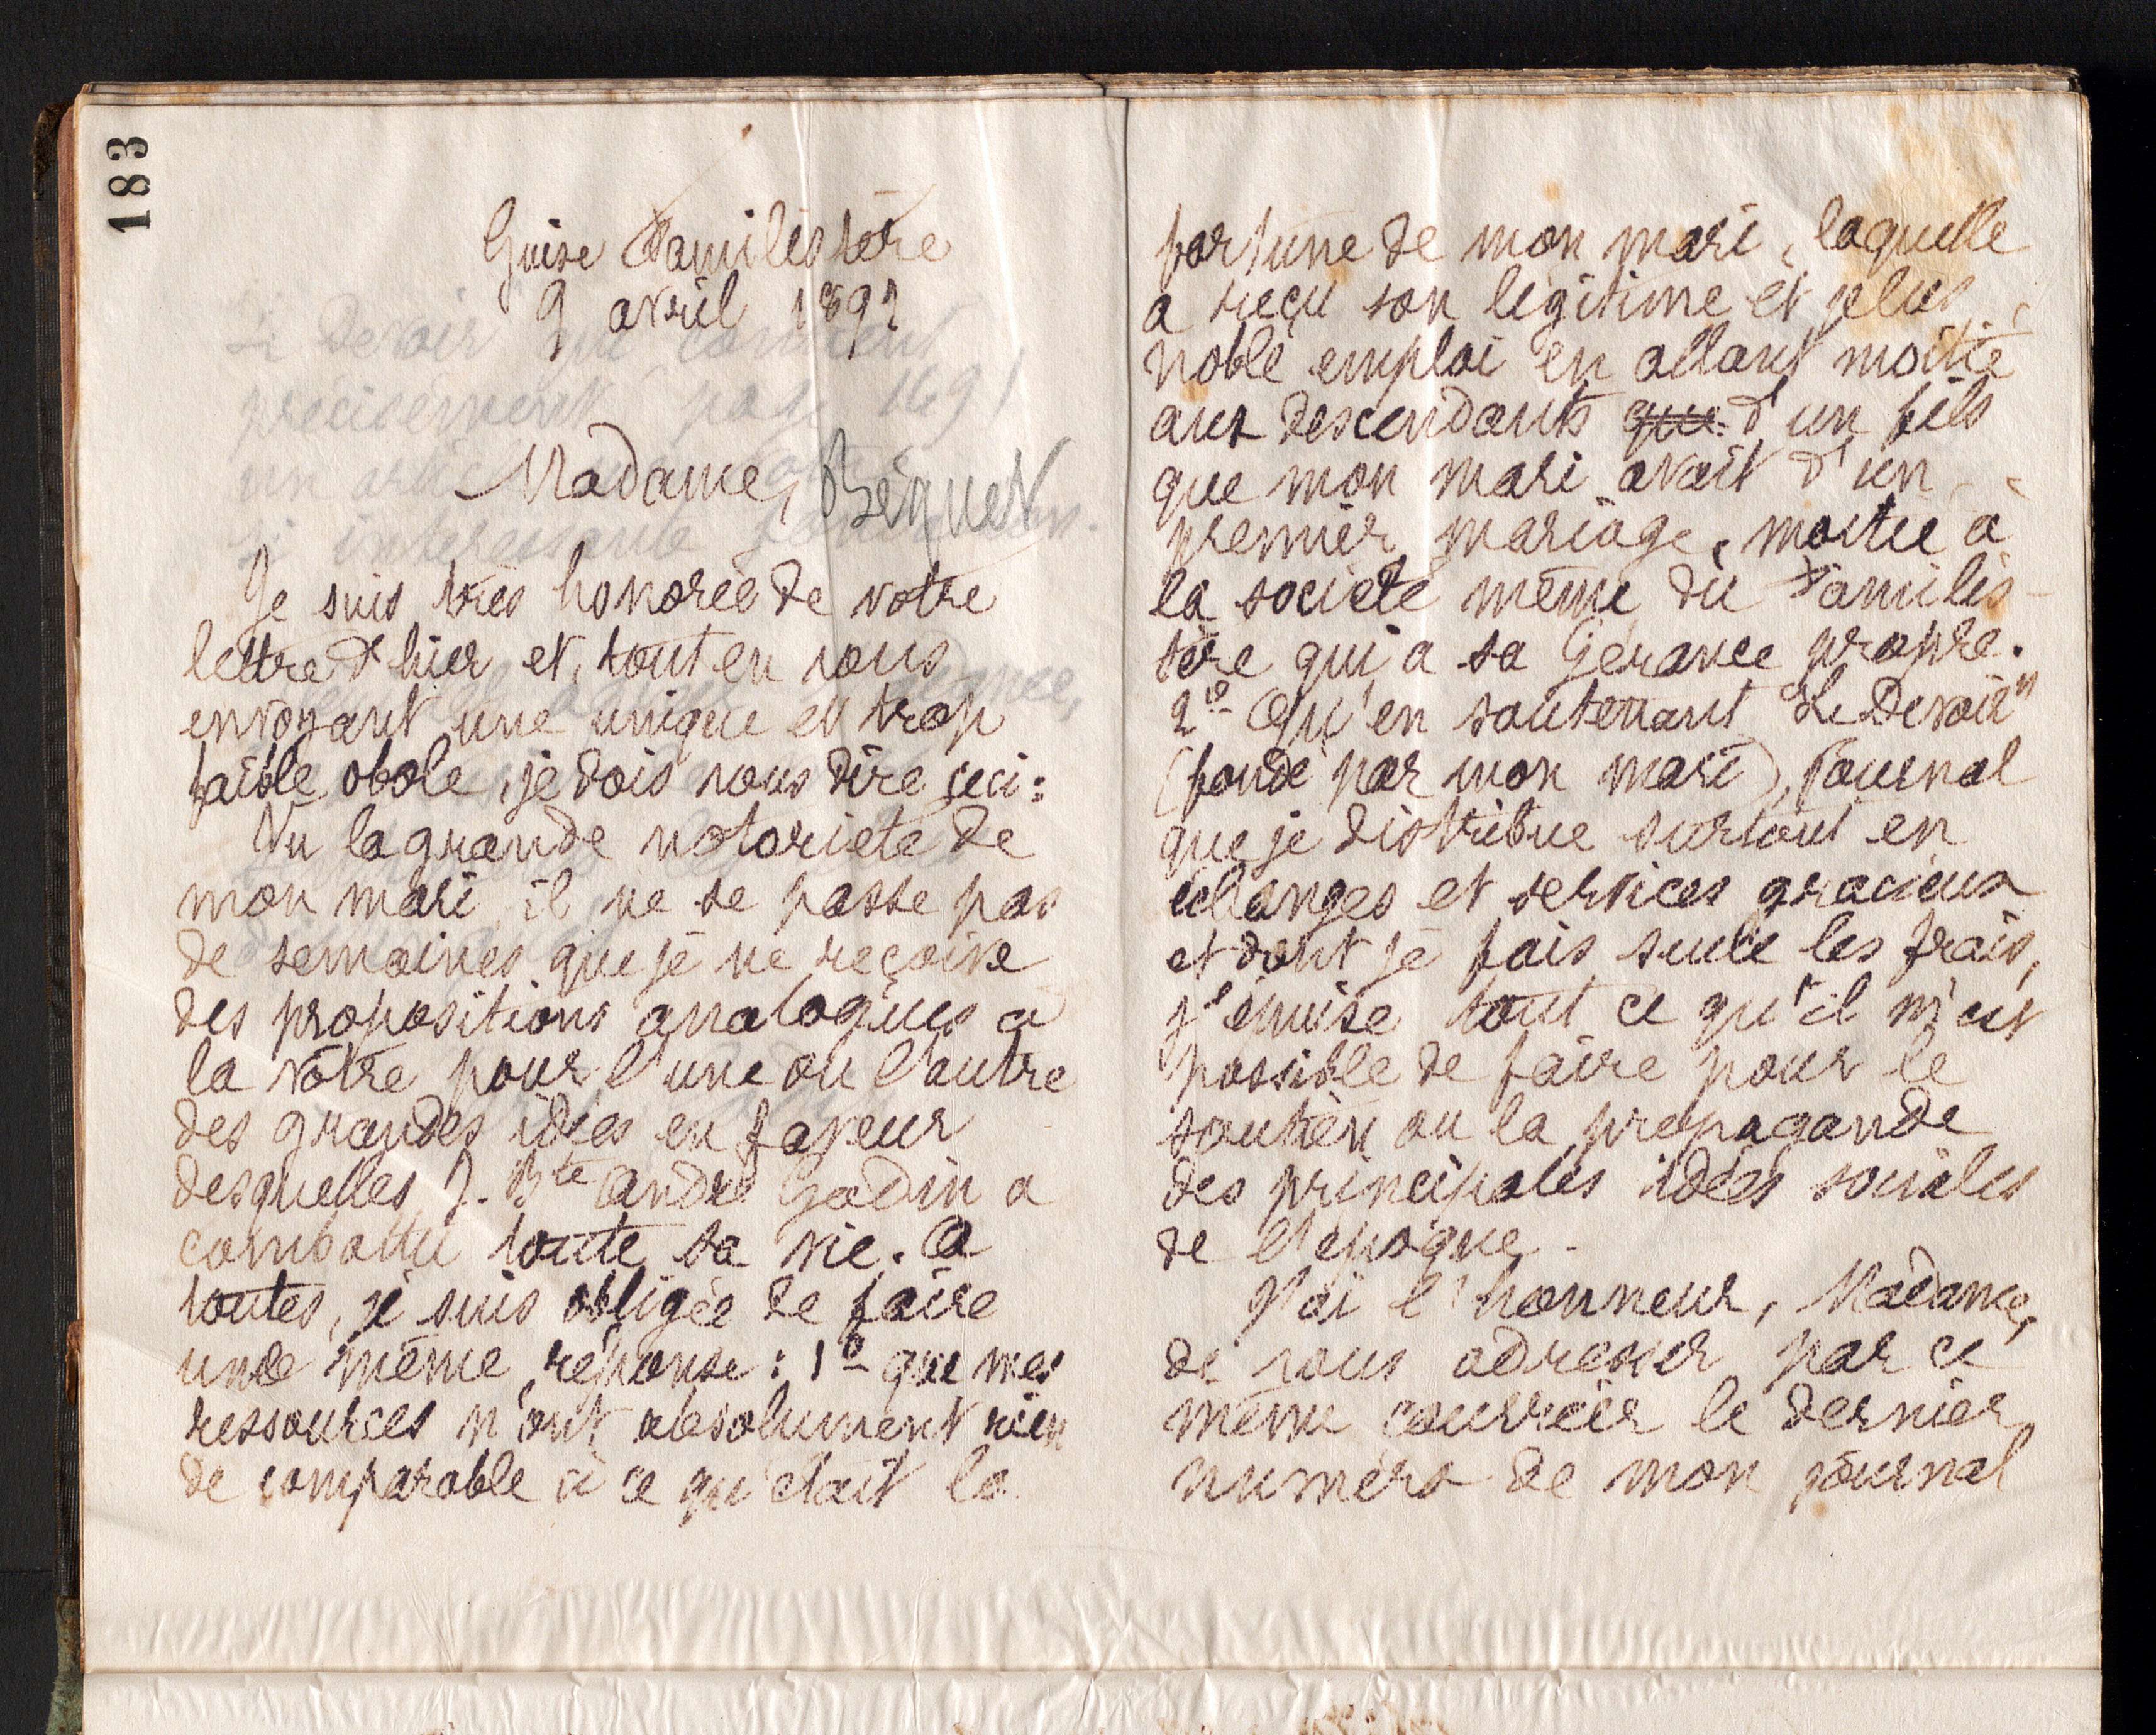 183
Guise Familistère
9 avril 1892
Madame, Béquet
Je suis très honorée de votre
lettre d'hier et, tout en vous
envoyant une unique et trop
faible obole, je dois vous dire ceci :
Vu la grande notoriété de
mon mari il ne se passe pas
de semaines que je ne reçoive
des propositions analogues à
la vôtre pour l'une ou l'autre
des grandes idées en faveur
desquelles J. Bte André Godin a
combattu toute sa vie. A
toutes, je suis obligée de faire
une même réponse : 1° que mes
ressources n'ont absolument rien
de comparable à ce qu'était la
fortune de mon mari, laquelle
a reçu son légitime et plus
noble emploi en allant moitié
aux descendants qui d'un fils
que mon mari avait d'un
premier mariage, moitié à
la société même du Familis-
tère qui a sa Gérance propre.
2° Qu'en soutenant "Le Devoir"
(fondé par mon mari), Journal
que je distribue surtout en
échanges et services gracieux
et dont je fais seule les frais,
j'épuise tout ce qu'il m'est
possible de faire pour le
soutien ou la propagande
des principales idées sociales
de l'époque.
J'ai l'honneur, Madame,
de vous adresser par ce
même courrier le dernier
numéro de mon journal